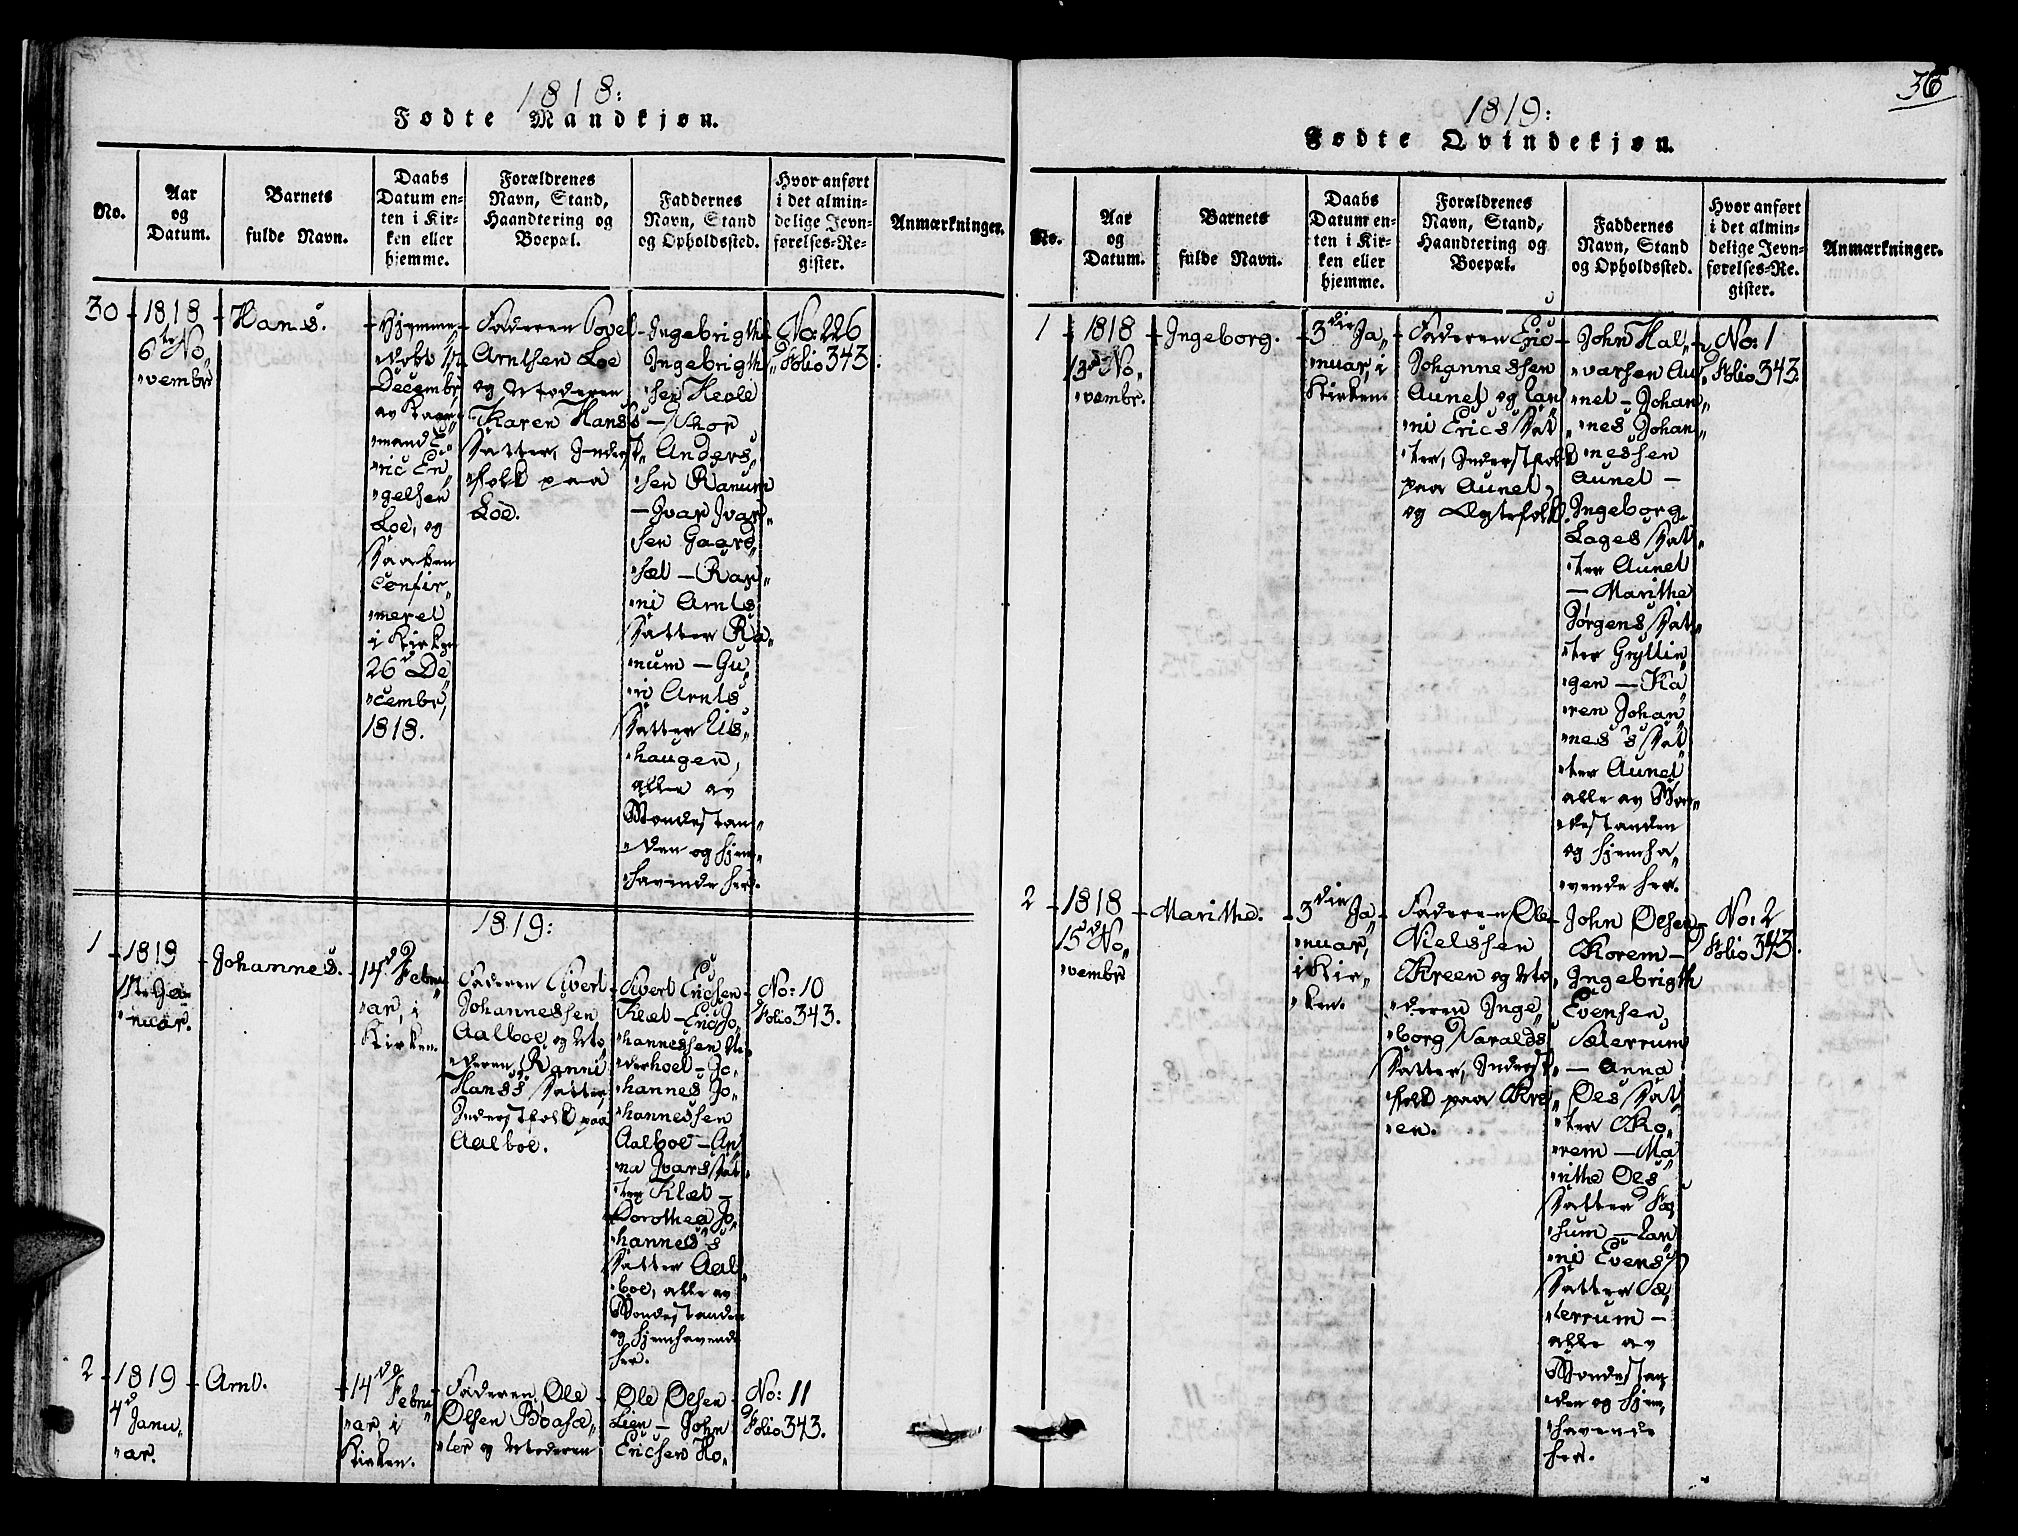 1818:
Fødte Mandkjøn.
No.
Aar
og
Datum.
Barnets
fulde Navn.
Daabs
Datum en-
ten i Kir-
ken eller
hjemme.
Forældrenes
Navn, Stand,
Haandtering og
Boepæl.
Faddernes
Navn, Stand
og Opholdssted.
Hvor anført
i det almin-
delige Jevn-
førelses-Re-
gister.
Anmærkninger.
30
1818
6te No„
„vembr
Hans.
Hjemme
døbt
Decembr
av
mand E„
„ric En„
„gelsen
Loe, og
Daaben
confir„
„meret
i Kirken
26d De„
„cembr,
1818.
Faderen Povel
Arntsen Loe
og Moderen
Karen Hans's
Datter, Inderst„
„folk paa
Loe.
Ingebrigth
Ingebrigth„
„sen
— Thor
Anders„
„sen Ranum
— Ivar Ivar„
„sen Gaard„
„sæt — Ran„
„ni Arnts
Datter Ra„
„num — Gu„
„ri Arnts
Datter Lis„
„haugen,
alle av
Bondestan„
„den og hjem„
„havende her.
No: 226
Folio 343.
1819:
1
1819
Ja„
„nuar.
Johannes.
14de Febru„
„ar, i
Kirken.
Faderen Sivert
Johannessen
Aalboe, og Mo„
„deren Ranni
Hans's Datter,
Inderstfolk paa
Aalboe.
Sivert Ericsen
Klæt — Eric Jo„
„hannessen Ne„
„derhoel — Jo„
„hannes Jo„
„hannessen
Aalboe — An„
„na Ivars Dat„
„ter Klæt —
Dorothea Jo„
„hannes's
Datter Aal„
„boe, alle av
Bondestanden
og hjemhavende
her.
No: 10
Folio 343.
2
1819
4d Janu„
„ar.
Arnt.
14de Febru„
„ar, i
Kirken.
Faderen Ole
Olsen Baasæ„
„ter og Moderen
Ole Olsen
Lien — John
Ericsen Ho„
No: 11
Folio 343.
36
1819:
Fødte Qvindekjøn.
No.
Aar
og
Datum.
Barnets
fulde Navn.
Daabs
Datum en-
ten i Kir-
ken eller
hjemme.
Forældrenes
Navn, Stand,
Haandtering og
Boepæl.
Faddernes
Navn, Stand
og Opholdssted.
Hvor anført
i det almin-
delige Jevn-
førelses-Re-
gister.
Anmærkninger.
1
1818
13de No„
„vembr.
Ingeborg.
3die Ja„
„nuar, i
Kirken.
Faderen Eric
Johannessen
Aunet og Ran„
„ni Erics Dat„
„ter, Inderstfolk
paa Aunet,
og Ægtefolk.
John Hal„
„varsen Au„
„net — Johan„
„nes Johan„
„nessen
Aunet —
Ingeborg
Lages Dat„
„ter Aunet
— Marithe
Jørgens Dat„
„ter Gryttin„
„gen — Ka„
„ren Johan„
„nes's Dat„
„ter Aunet
alle av Bon„
„destanden
og hjemha„
„vende her.
No: 1
Folio 343.
2
1818
15de No„
„vembr
Marithe.
3die Ja„
„nuar,
i Kir„
„ken.
Faderen Ole
Nielssen
Kreen og Mo„
„deren Inge„
„borg Haralds
Datter, Inderst„
„folk paa Kre„
„en.
John Olsen
Korem —
Ingebrigth
Evensen
Sæterrum
— Anna
Oles Dat„
„ter Ko„
„rem — Ma„
„rithe Oles
Datter
„hum — Ran„
„ni Evens
Datter Sæ„
„terrum —
alle av
Bondestan„
„den og hjem„
„havende
her.
No: 2
Folio 343.